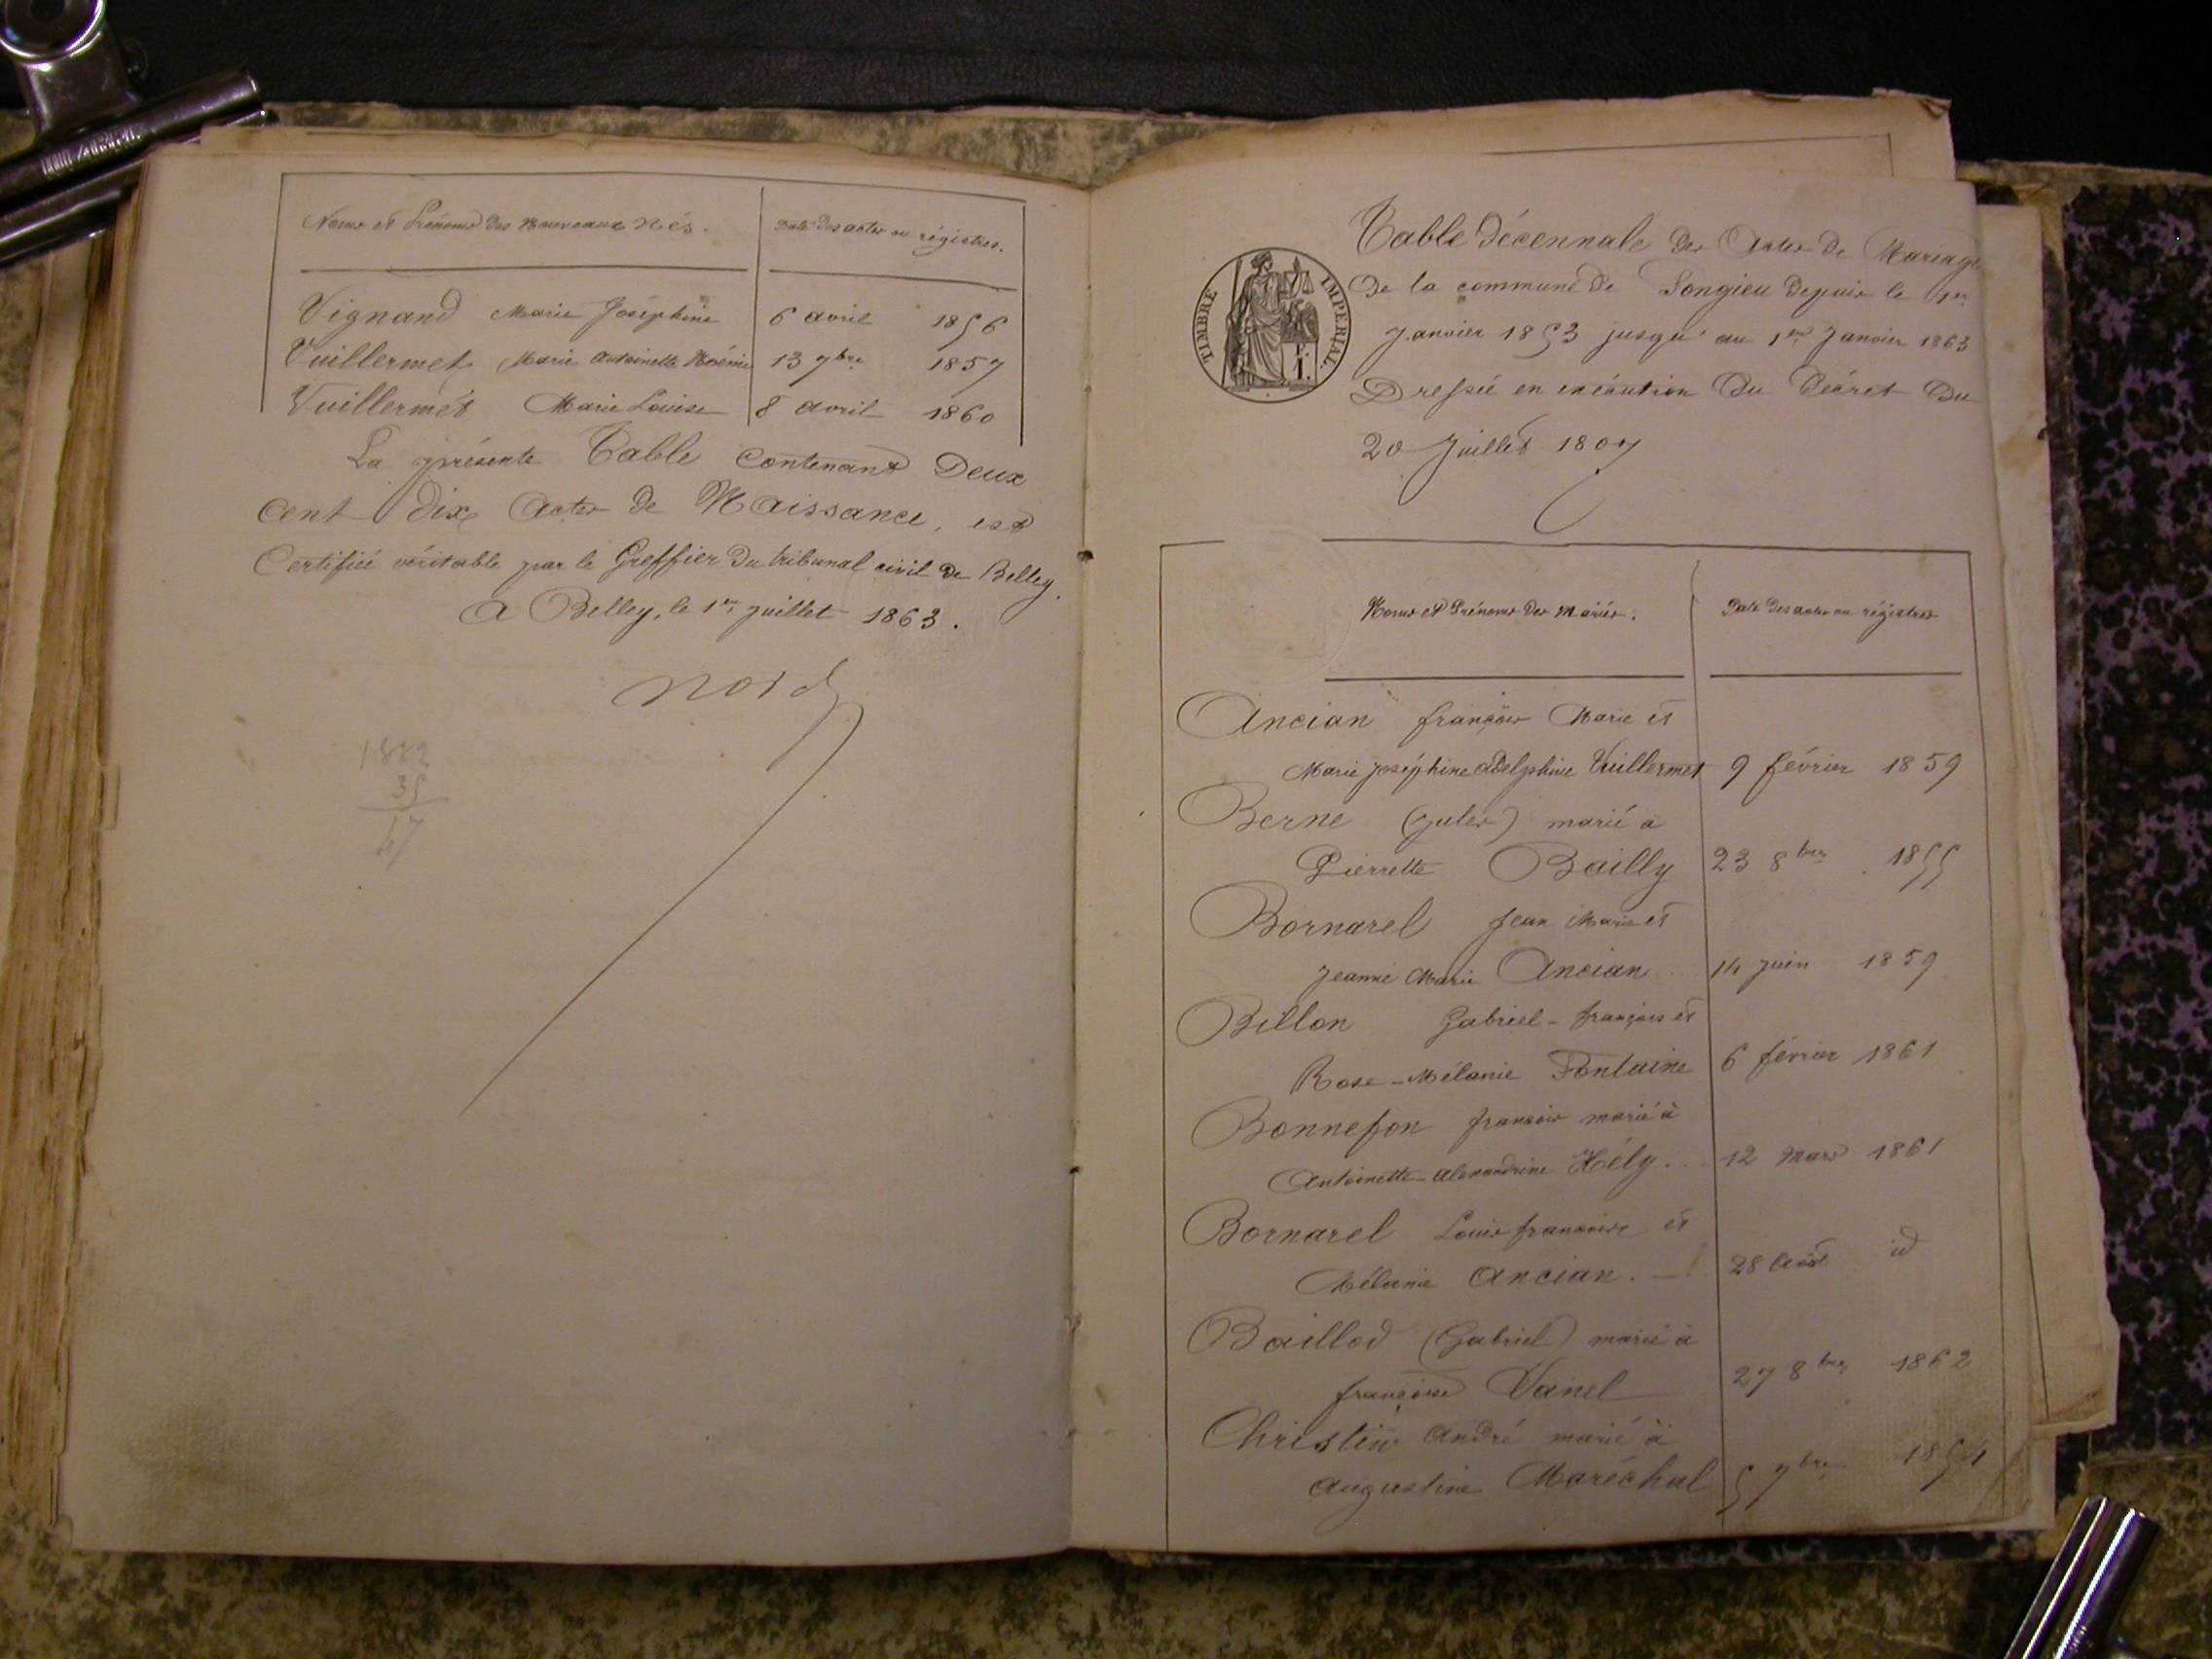 Noms et Prénoms des Nouveaux Nés.
Date des actes ou régistres.
Vignand Marie Joséphine 6 avril 1856
Vuillermet Marie Antoinette Noémie 13 7bre 1857
Vuillermet Marie Louise 8 avril 1860
La présente Table Contenant Deux
cent dix Actes de Naissance, est
Certifiée véritable par le Greffier du tribunal civil de Belley.
A Belley, le 1er juillet 1863.
1882
35
47
TIMBRE IMPERIAL.
Table décennale des Actes de Mariage
De la commune de Songieu depuis le 1er
Janvier 1853 jusqu'au 1er Janvier 1863
Dressée en exécution du Décret du
20 Juillet 1807
Noms et Prénoms des Mariés.
Date des actes ou régistres
Ancian françois Marie et
Marie Joséphine adelphine Vuillermet 9 février 1859
Berne (Jules) marié à
Pierrette Bailly 23 8bre 1855
Bornarel Jean Marie et
Jeanne Marie Ancian 14 juin 1859
Billon Gabriel-françois et
Rose-Mélanie Fontaine 6 février 1861
Bonnefon françois marié à
Antoinette-alexandrine Hély... 12 Mars 1861
Bornarel Louis françois et
Mélanie Ancian. 28 Août id
Baillod (Gabriel) marié à
françoise Vanel 27 8bre 1862
Christin André marié à
augustine Maréchal 5 7bre 1854